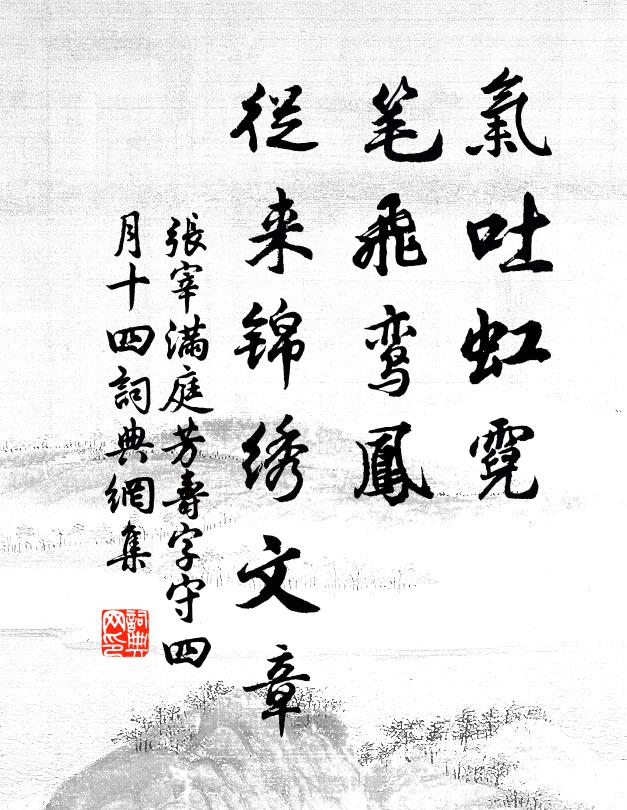 氣吐虹霓
笔飛鸾鳳
從来锦绣文章
張宰滿庭芳壽字守四
月十四詞典網集
詞典网印